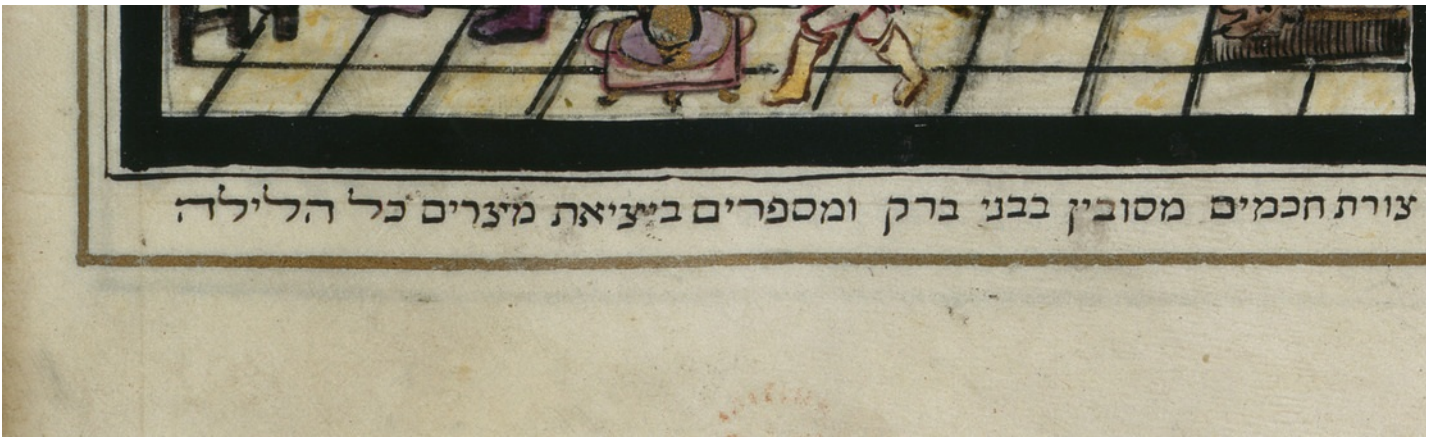 צורת חכמים מסובין בבני ברק ומספרים ביציאת מצרים כל הלילה